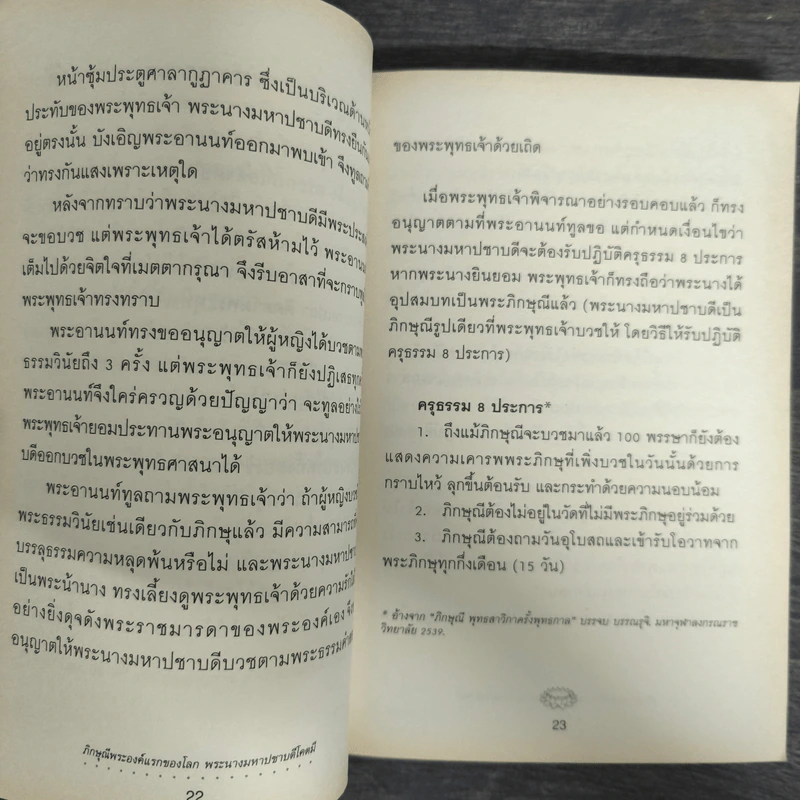 หน้าซุ้มประตูศาลากูฏาคาร ซึ่งเป็นบริเวณด้าน
ประทับของพระพุทธเจ้า พระนางมหาปชาบดีทรงยืน
อยู่ตรงนั้น บังเอิญพระอานนท์ออกมาพบเข้า จึงทูล
ว่าทรงกันแสงเพราะเหตุใด
หลังจากทราบว่าพระนางมหาปชาบดีมีพระ
จะขอบวช แต่พระพุทธเจ้าได้ตรัสห้ามไว้ พระอานน
เต็มไปด้วยจิตใจที่เมตตากรุณา จึงรีบอาสาที่จะกราบ
พระพุทธเจ้าทรงทราบ
พระอานนท์ทรงขออนุญาตให้ผู้หญิงได้บวชตาม
ธรรมวินัยถึง 3 ครั้ง แต่พระพุทธเจ้าก็ยังปฏิเสธทุก
พระอานนท์จึงใคร่ครวญด้วยปัญญาว่า จะทูลอย่าง
พระพุทธเจ้ายอมประทานพระอนุญาตให้พระนางมหาป
บดีออกบวชในพระพุทธศาสนาได้
พระอานนท์ทูลถามพระพุทธเจ้าว่า ถ้าผู้หญิง
พระธรรมวินัยเช่นเดียวกับภิกษุแล้ว มีความสามาร
บรรลุธรรมความหลุดพ้นหรือไม่ และพระนางมหาปชาบ
เป็นพระน้านาง ทรงเลี้ยงดูพระพุทธเจ้าด้วยความรัก
อย่างยิ่งดุจดังพระราชมารดาของพระองค์เอง
อนุญาตให้พระนางมหาปชาบดีบวชตามพระธรรม
ภิกษุณีพระองค์แรกของโลก พระนางมหาปชาบดีโคตมี
22
ของพระพุทธเจ้าด้วยเถิด
เมื่อพระพุทธเจ้าพิจารณาอย่างรอบคอบแล้ว ก็ทรง
อนุญาตตามที่พระอานนท์ทูลขอ แต่กำหนดเงื่อนไขว่า
พระนางมหาปชาบดีจะต้องรับปฏิบัติครุธรรม 8 ประการ
หากพระนางยินยอม พระพุทธเจ้าก็ทรงถือว่าพระนางได้
อุปสมบทเป็นพระภิกษุณีแล้ว (พระนางมหาปชาบดีเป็น
ภิกษุณีรูปเดียวที่พระพุทธเจ้าบวชให้ โดยวิธีให้รับปฏิบัติ
ครุธรรม 8 ประการ)
ครุธรรม 8 ประการ*
1. ถึงแม้ภิกษุณีจะบวชมาแล้ว 100 พรรษาก็ยังต้อง
แสดงความเคารพพระภิกษุที่เพิ่งบวชในวันนั้นด้วยการ
กราบไหว้ ลุกขึ้นต้อนรับ และกระทำด้วยความนอบน้อม
2. ภิกษุณีต้องไม่อยู่ในวัดที่ไม่มีพระภิกษุอยู่ร่วมด้วย
3. ภิกษุณีต้องถามวันอุโบสถและเข้ารับโอวาทจาก
พระภิกษุทุกกึ่งเดือน (15 วัน)
* อ้างจาก "ภิกษุณี พุทธสาวิกาครั้งพุทธกาล" บรรจบ บรรณรุจิ. มหาจุฬาลงกรณราช
วิทยาลัย 2539.
23